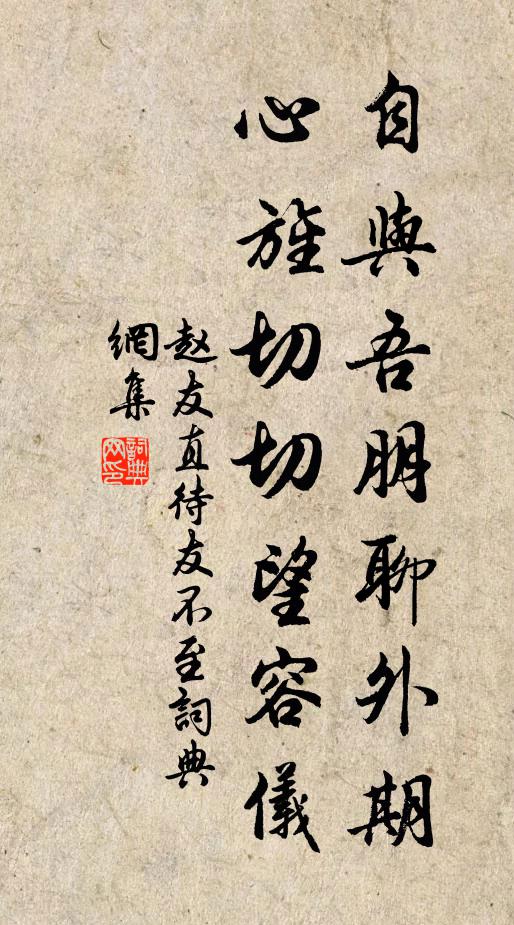 自與吾朋聊外期
心旌切切望容儀
赵友直待友不至詞典
網集
詞典网印